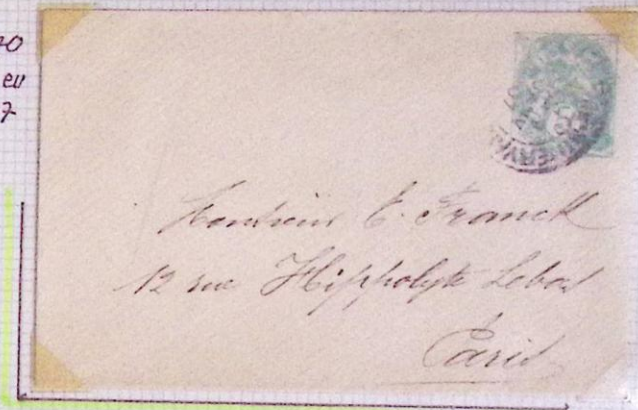 Monsieur E. Franck
12 rue Hippolyte Lebas
Paris